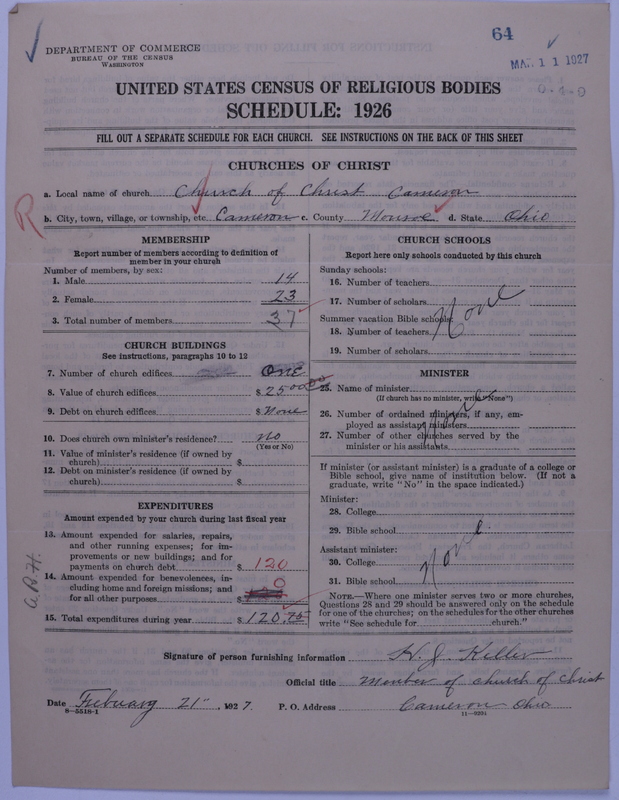 64
MAR 11 1927
0-4-0
DEPARTMENT OF COMMERCE
BUREAU OF THE CENSUS
WASHINGTON
UNITED STATES CENSUS OF RELIGIOUS BODIES
SCHEDULE: 1926
FILL OUT A SEPARATE SCHEDULE FOR EACH CHURCH. SEE INSTRUCTIONS ON THE BACK OF THIS SHEET
CHURCHES OF CHRIST
a. Local name of church Church of Christ Cameron
R
b. City, town, village, or township, etc. Cameron c. County Monroe d. State Ohio
MEMBERSHIP
Report number of members according to definition of
member in your church
Number of members, by sex:
1. Male 14
2. Female 23
3. Total number of members 37
CHURCH BUILDINGS
See instructions, paragraphs 10 to 12
7. Number of church edifices one
8. Value of church edifices $ 2500
9. Debt on church edifices $ None
10. Does church own minister's residence? no
(Yes or No)
11. Value of minister's residence (if owned by
church) $
12. Debt on minister's residence (if owned by
church) $
EXPENDITURES
Amount expended by your church during last fiscal year
13. Amount expended for salaries, repairs,
and other running expenses; for im-
provements or new buildings; and for
payments on church debt $ 120
14. Amount expended for benevolences, in-
cluding home and foreign missions; and
for all other purposes $ 0
15. Total expenditures during year $ 120.75
CHURCH SCHOOLS
Report here only schools conducted by this church
Sunday schools:
16. Number of teachers
17. Number of scholars
None
Summer vacation Bible schools:
18. Number of teachers
19. Number of scholars
MINISTER
25. Name of minister
(If church has no minister, write "None")
None
26. Number of ordained ministers, if any, em-
ployed as assistant ministers
27. Number of other churches served by the
minister or his assistants
If minister (or assistant minister) is a graduate of a college or
Bible school, give name of institution below. (If not a
graduate, write "No" in the space indicated.)
Minister:
28. College
29. Bible school
None
Assistant minister:
30. College
31. Bible school
NOTE.—Where one minister serves two or more churches,
Questions 28 and 29 should be answered only on the schedule
for one of the churches; on the schedules for the other churches
write "See schedule for church."
Signature of person furnishing information H. J. Keller
Official title Member of church of Christ
Date February 21", 1927. P. O. Address Cameron Ohio
8—5518-1 11—9291